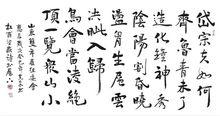 岱宗夫如何
齊魯青未了
造化鍾神秀
陰陽割昏曉
盪胸生層雲
決眦入歸
鳥會當凌絕
頂一覽眾山小